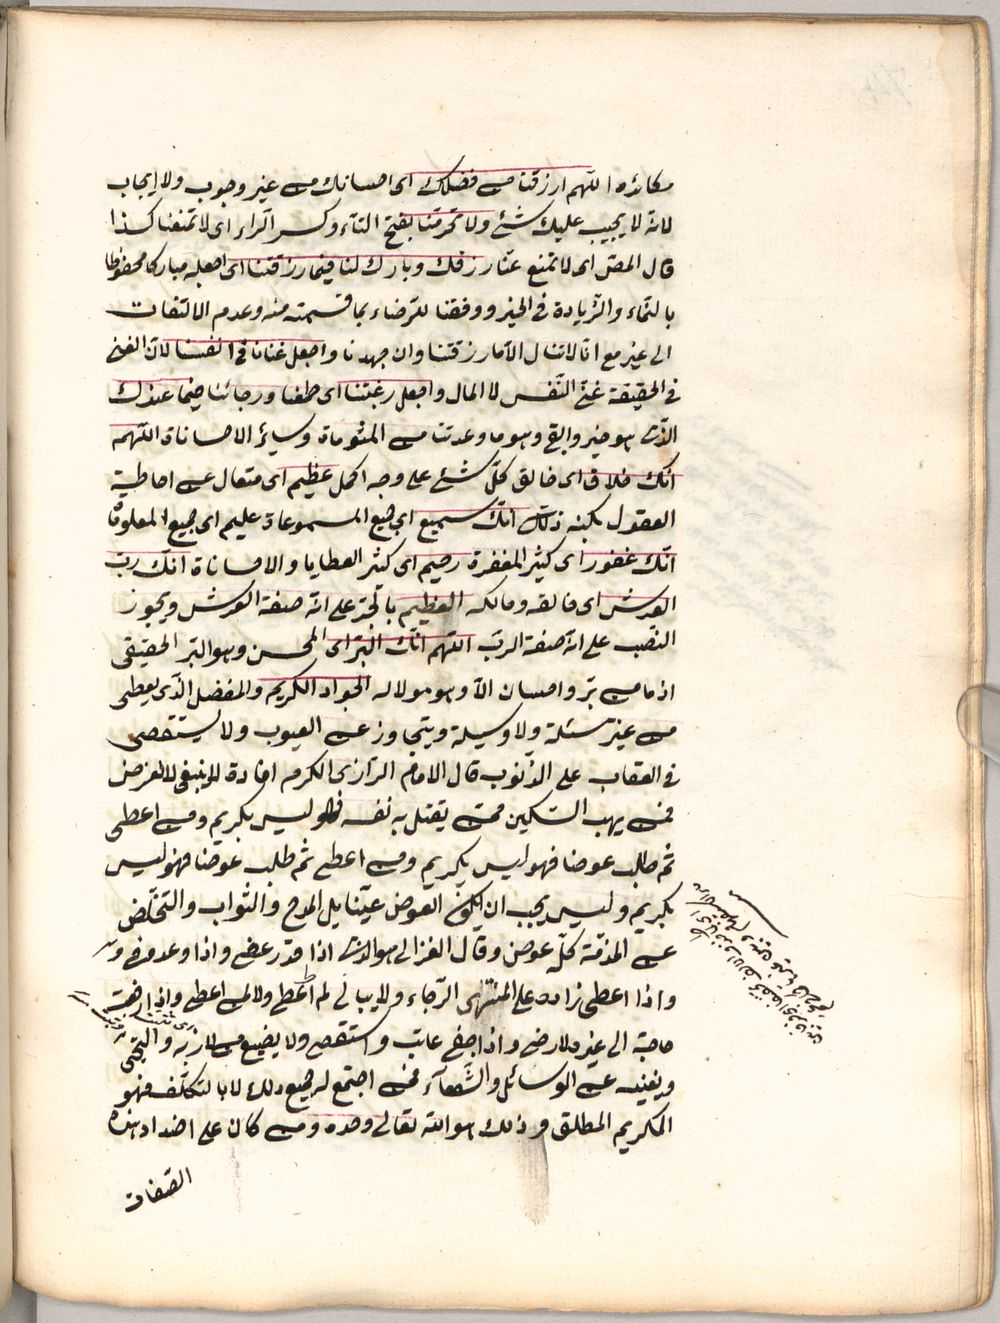 مكائده اللّهم ارزقنا من فضلك اى احسانك من غير وجوب ولا ايجاب
لانّه لا يجيب عليك شئ ولا تحرمنا بفتح التاء وكسر الراء اى لا تمنعنا كذا
قال المصّ اى لا تمنع عنّا رزقك وبارك لنا فيما رزقتنا اى اجعله مباركا محفوظا
بالنّماء والزّيادة فى الخير ووفقنا للرّضاء بما قسمته منه وعدم الالتفات
الى غير مع انّا لا ننال الّا ما رزقتنا وان جهدنا واجعل غنانا فى انفسنا لانّ الغنى
فى الحقيقة غنى النّفس لا المال واجعل رغبتنا اى طمعنا ورجائنا فيما عندك
الّذى هو خير وابقى وهو ما وعدتنا من المثوبات وسائر الاحسانات اللّهمّ
انّك خلاق اى خالق كلّ شئ على وجه اكمل عظيم اى متعال عن احاطة
العقول بكنه ذلك انّك سميع اى جميع المسموعات عليم اى جميع المعلومات
انّك غفور اى كثير المغفرة رحيم اى كثير العطايا والاحسانات انّك ربّ
العرش اى خالقه ومالكه العظيم بالجرّ على انّه صفة العرش ويجوز
النّصب على انّه صفة الربّ اللّهم انّك البرّ اى المحسن وهو البرّ الحقيقى
اذ ما من برّ واحسان الّا وهو مولاه الجواد الكريم والمفضل الّذى يعطى
من غير مسئلة ولا وسيلة ويتجاوز عن العيوب ولا يستقصى
فى العقاب على الذّنوب قال الامام الرّازى الكرم افادة ما ينبغى لا لغرض
فمن يهب السّكين ممن يقتل به نفسه فهو ليس بكريم ومن اعطى
ثم طلب عوضا فهو ليس بكريم ومن اعطى ثم طلب عوضا فهو ليس
بكريم وليس يجب ان يكون العوض عينا بل المدح والثواب والتخلّص
عن المذمّة كلّه عوض وقال الغزالى هو الّذى اذا قدر عفى واذا وعد وفى
واذا اعطى زاد على المنتهى الرّجاء ولا يبالى لم اعطى ولا لمن اعطى واذا رفعت
حاجة الى غيره لا يرضى واذا جفى عاتب واستقصى ولا يضيع من لاذ به والتجى
ويغنيه عن الوسائل والشّفعاء فمن اجتمع له جميع ذلك لا بالتكلّف فهو
الكريم المطلق وذلك هو الله تعالى وحده ومن كان على اضداد هذه
الصّفات